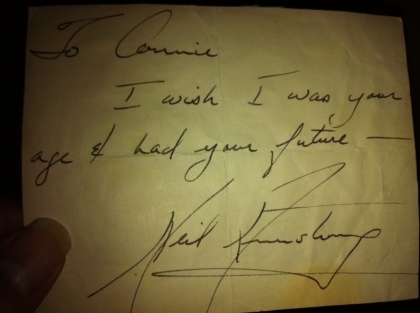 To Connie
I wish I was your
age & had your future —
Neil Armstrong